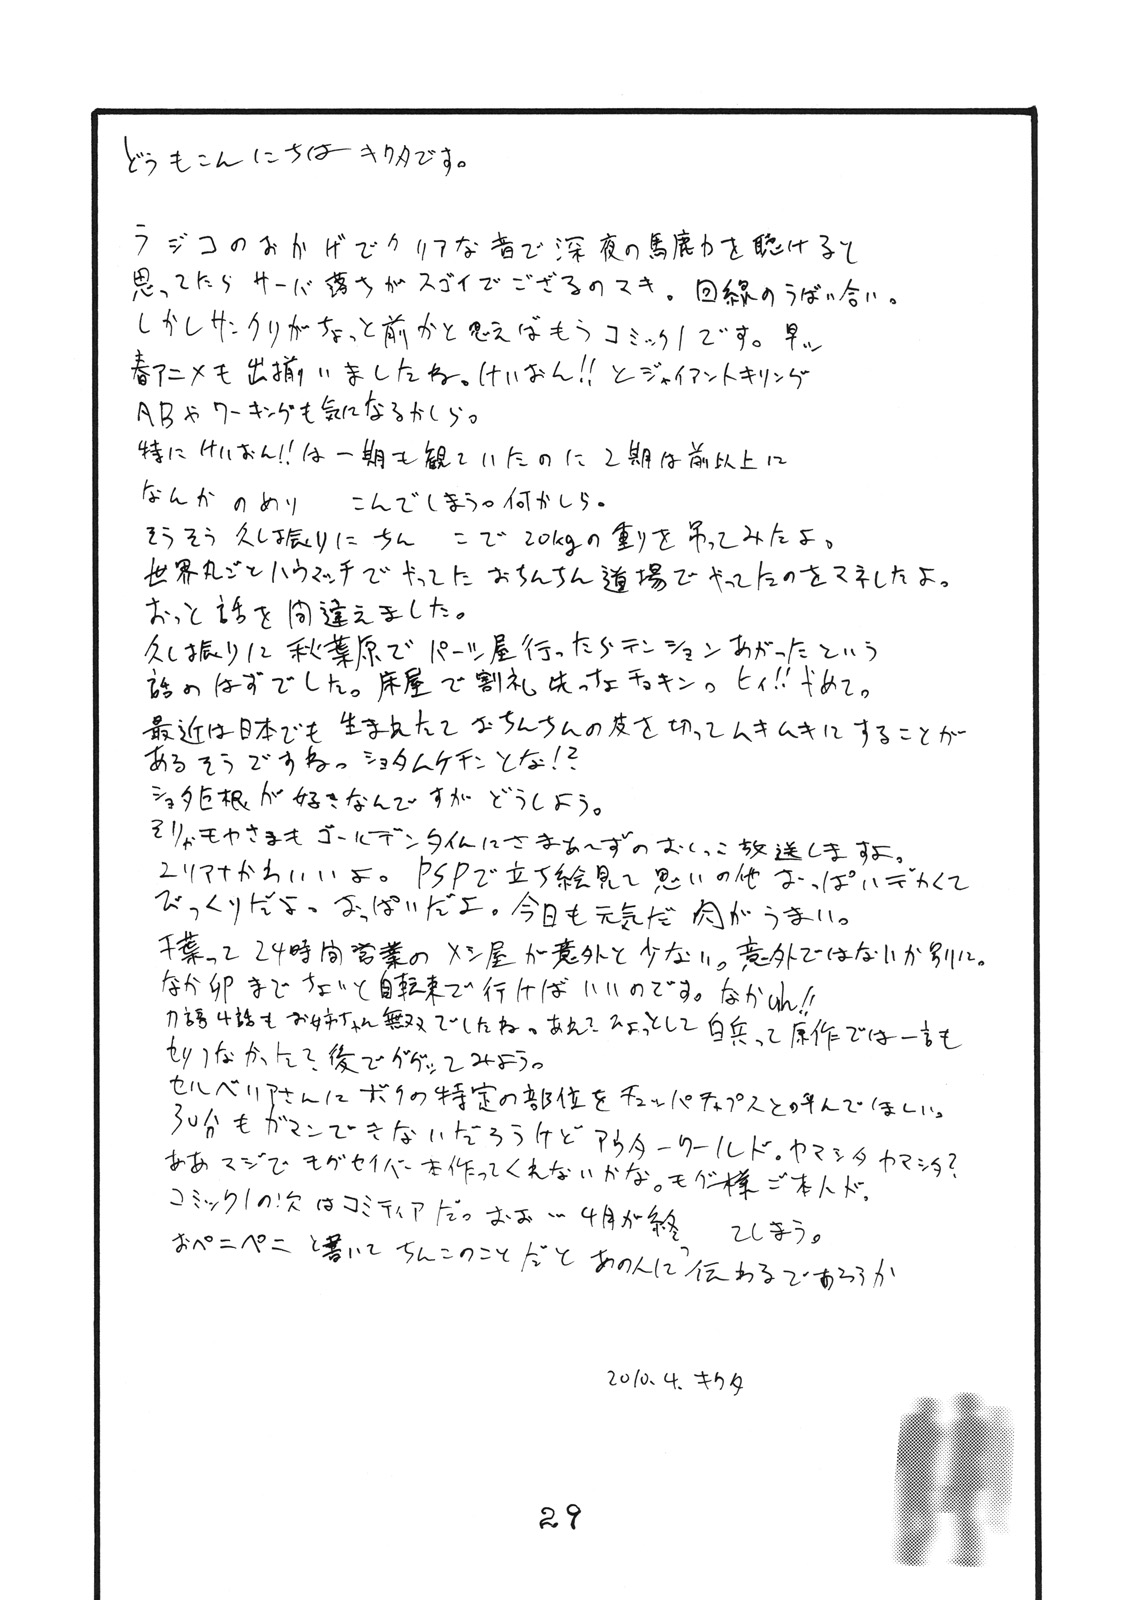 どうもこんにちは キクタです。
ラジコのおかげでクリアな音で深夜の馬鹿力を聴けると
思ってたら サーバ落ちがスゴイでござるのマキ。回線のうばい合い。
しかしサンクリがちょっと前かと思えばもうコミック1です。早ッ
春アニメも出揃いましたね。けいおん!!とジャイアントキリング
ABやワーキングも気になるかしら。
特にけいおん!!は一期も観ていたのに2期は前以上に
なんか のめり こんでしまう。何かしら。
そうそう 久し振りに ちん こで20kgの重りを吊ってみたよ。
世界丸ごとハウマッチでやってた おちんちん道場でやってたのをマネしたよ。
おっと話を間違えました。
久し振りに秋葉原でパーツ屋行ったらテンションあがったという
話のはずでした。床屋で割礼 先っちょチョキン。ヒィ!!やめて。
そりゃもやさまも ゴールデンタイムにさまぁ〜ずのおしっこ放送しますよ。
ユリアナかわいいよ。PSPで立ち絵見て思いの他おっぱいデカくて
びっくりだよ。おっぱいだよ。今日も元気だ 肉がうまい。
千葉って24時間営業のメシ屋が意外と少ない。意外ではないか別に。
なか卯までちょいと自転車で行けばいいのです。なかuh!!
刀語4話もお姉ちゃん無双でしたね。あれ?ひょっとして白兵って原作では一言も
セリフなかった?後でググッてみよう。
セルベリアさんにボクの特定の部位をチュッパチャプスと呼んでほしい。
30分もガマンできないだろうけど アウターワールド。ヤマシタ ヤマシタ?
ああマジでモグセイバー本作ってくれないかな。モグ様ご本人が。
コミック1の次はコミティアだっ おお… 4月が終 てしまう。
おペニペニ と書いて ちんこのことだと あのんに 伝わるであろうか
2010.4. キクタ
29